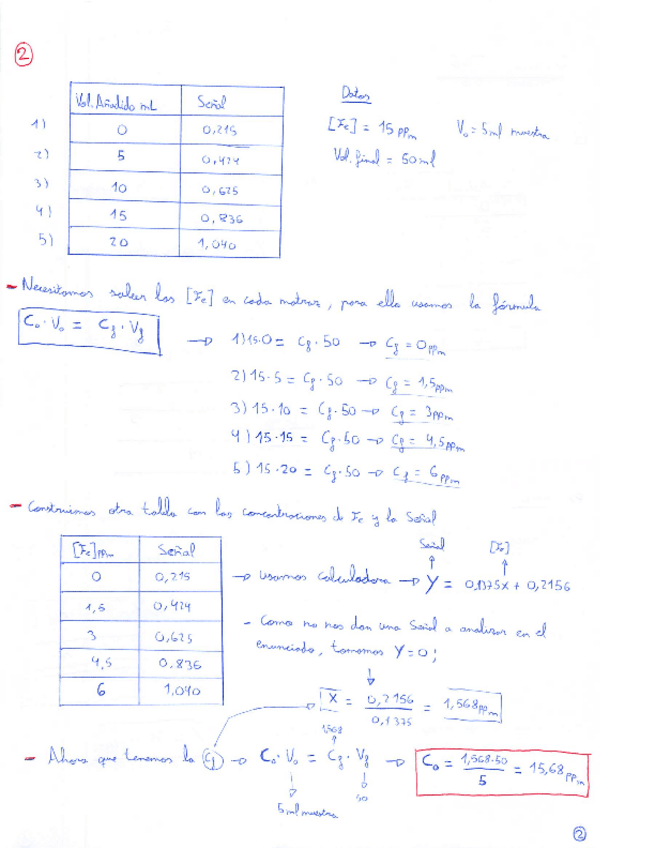 2
Vol. Añadido mL Señal
1) 0 0,215
2) 5 0,424
3) 10 0,625
4) 15 0,836
5) 20 1,040
Datos
[Fe] = 15 ppm V₀ = 5ml muestra
Vol. final = 50ml
- Necesitamos saber las [Fe] en cada matraz, para ello usamos la fórmula
C₀ · V₀ = Cf · Vf
→ 1) 15·0 = Cf · 50 → Cf = 0ppm
2) 15·5 = Cf · 50 → Cf = 1,5ppm
3) 15·10 = Cf · 50 → Cf = 3ppm
4) 15·15 = Cf · 50 → Cf = 4,5ppm
5) 15·20 = Cf · 50 → Cf = 6ppm
- Construimos otra tabla con las concentraciones de Fe y la Señal
[Fe]ppm Señal
0 0,215
1,5 0,424
3 0,625
4,5 0,836
6 1,040
Señal [Fe]
→ usamos calculadora → Y = 0,1375x + 0,2156
- Como no nos dan una Señal a analizar en el
enunciado, tomamos Y=0;
X = 0,2156 / 0,1375 = 1,568ppm
1,568
- Ahora que tenemos la Cf → C₀ · V₀ = Cf · Vf → C₀ = 1,568·50 / 5 = 15,68 ppm
5ml muestra 50
2